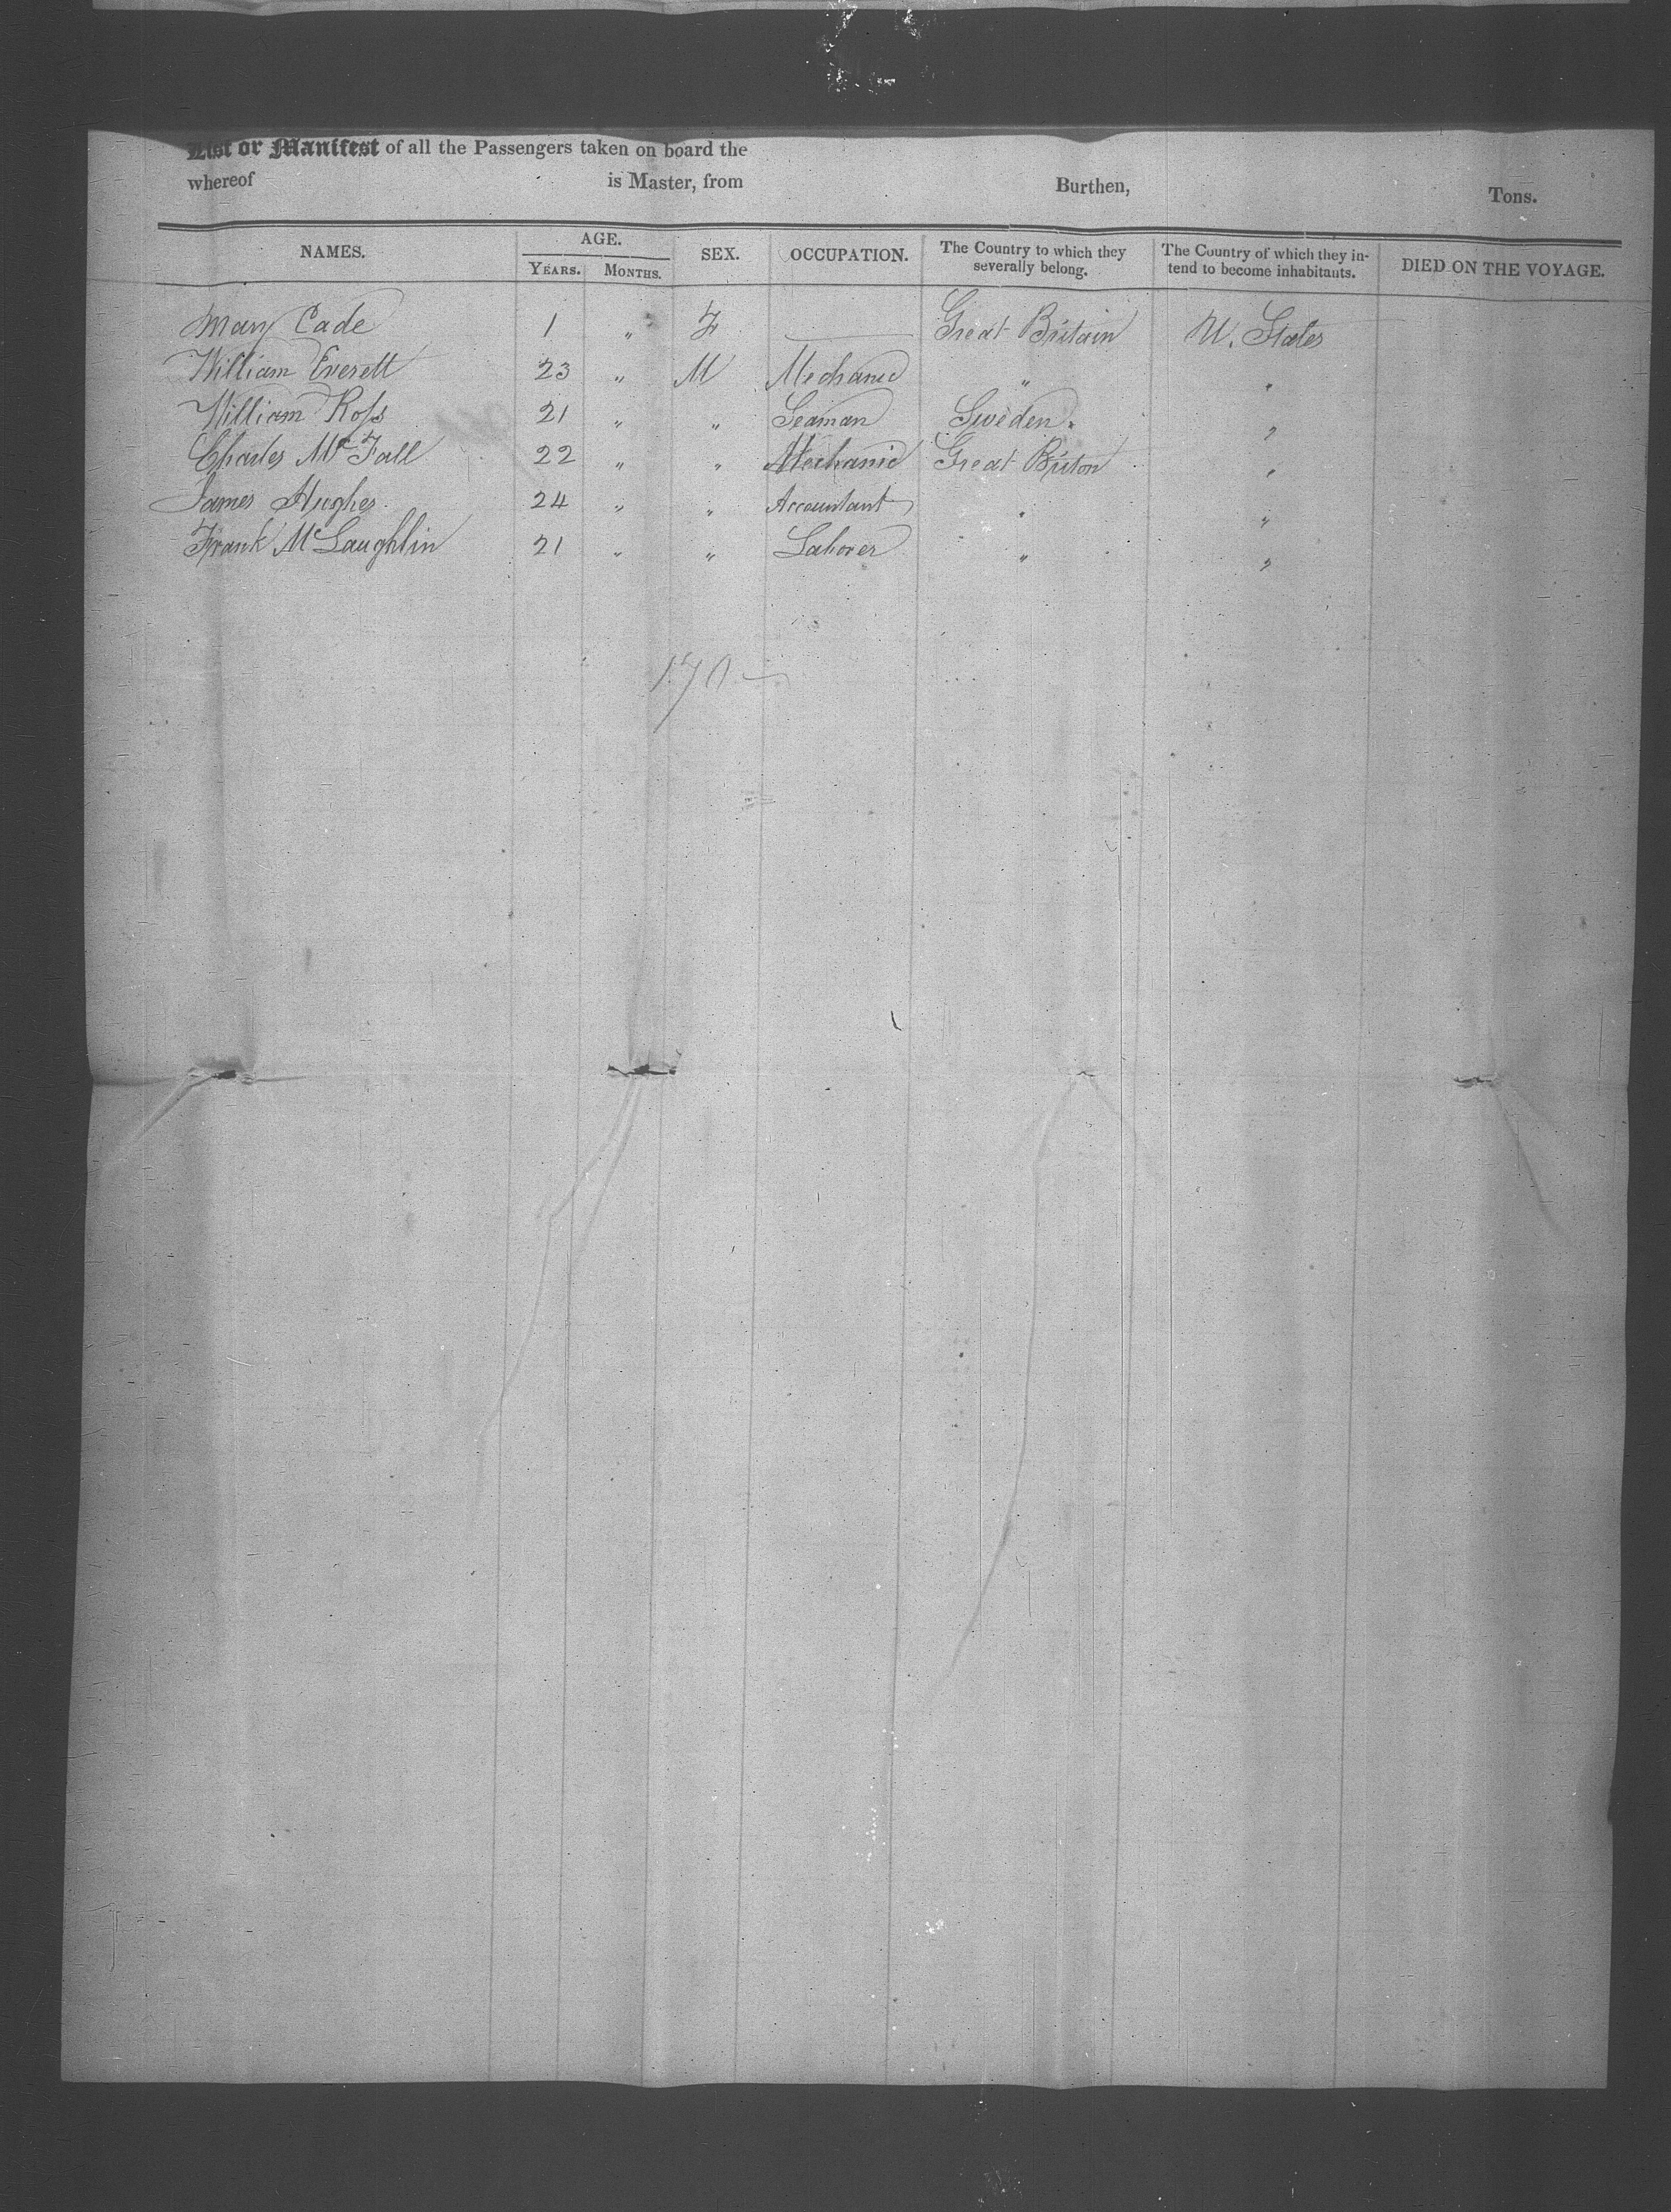 List or Manifest of all the Passengers taken on board the
whereof is Master, from Burthen, Tons.
NAMES. AGE. SEX. OCCUPATION. The Country to which they severally belong. The Country of which they in- tend to become inhabitants. DIED ON THE VOYAGE.
YEARS. MONTHS.
Mary Cade 1 " F — Great Britain U. States
William Everett 23 " M Mechanic " "
William Ross 21 " " Seaman Sweden. "
Charles McFall 22 " " Mechanic Great Briton "
James Hughes 24 " " Accountant " "
Frank McLaughlin 21 " " Laborer " "